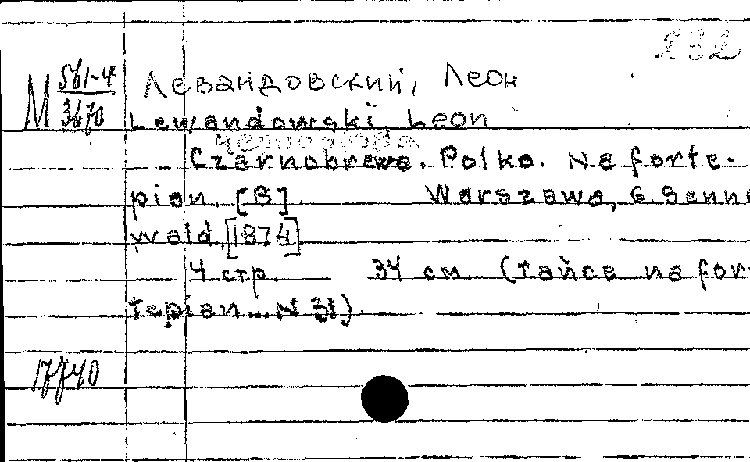 232
M 561-4
3670
Левандовский, Леон
Lewandowski Leon
Czarnobrewa. Polka. Na forte-
pian. [B]. Warszawa, G. Senne
wald [1874]
4 стр. 34 см (Tańce na for
tepian... N 31)
17740